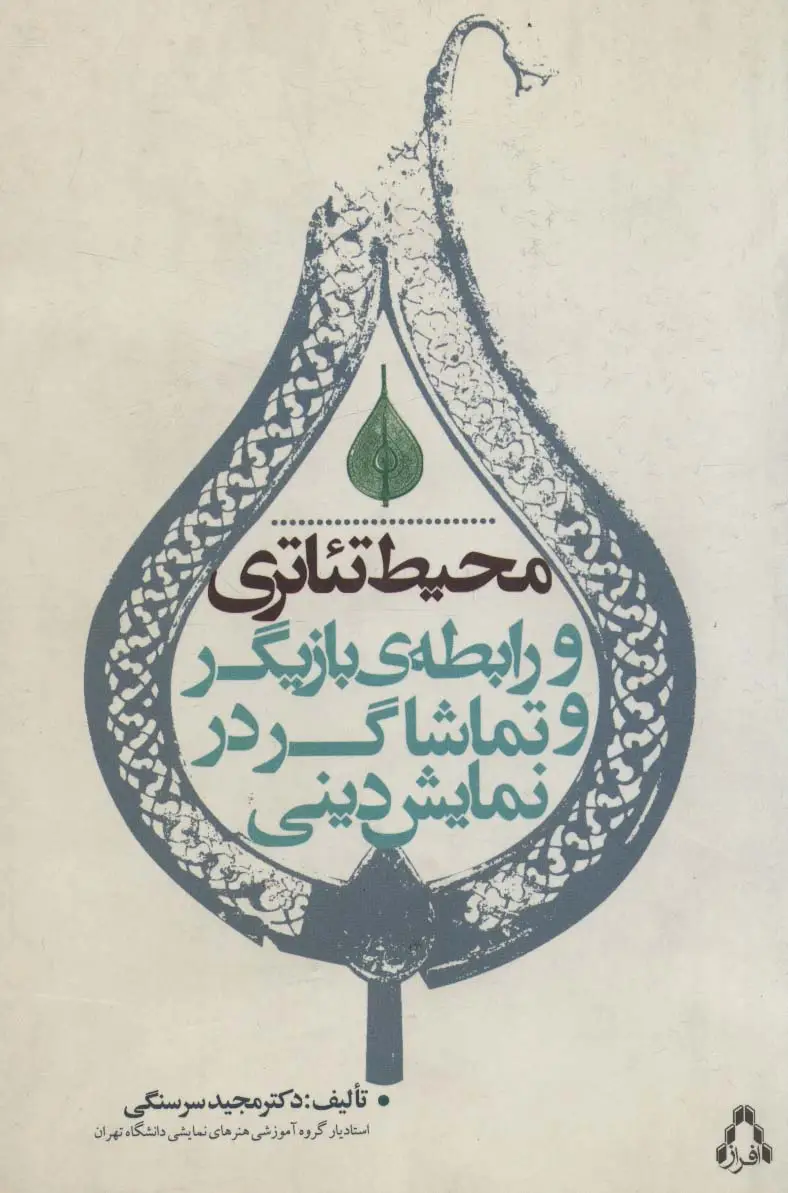 محیط تئاتری
و رابطه‌ی بازیگر
و تماشاگر در
نمایش دینی
• تألیف: دکتر مجید سرسنگی
استادیار گروه آموزشی هنرهای نمایشی دانشگاه تهران
افراز